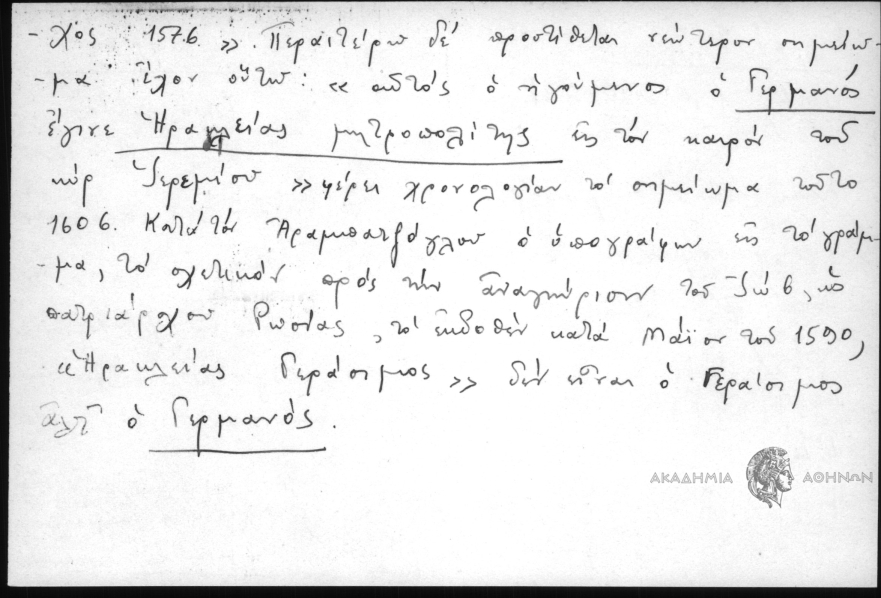 -χος 1576 ». Περαιτέρω δέ προστίθεται νεώτερον σημείω-
-μα ἔχον οὕτω: « αὐτός ὁ ἡγούμενος ὁ Γερμανός
ἔγινε Ἡρακλείας μητροπολίτης εἰς τόν καιρόν τοῦ
κύρ Ἰερεμίου » φέρει χρονολογίαν τό σημείωμα τοῦτο
1606. Κατά τόν Ἀραμπατζόγλου ὁ ὑπογράφων εἰς τό γράμ-
-μα, τό σχετικόν πρός τήν ἀναγνώρισιν τοῦ Ἰώβ, ὡς
πατριάρχου Ρωσίας, τό ἐκδοθέν κατά Μάϊον τοῦ 1590,
«Ἡρακλείας Γεράσιμος » δέν εἶναι ὁ Γεράσιμος
ἀλλ' ὁ Γερμανός.
ΑΚΑΔΗΜΙΑ ΑΘΗΝΩΝ